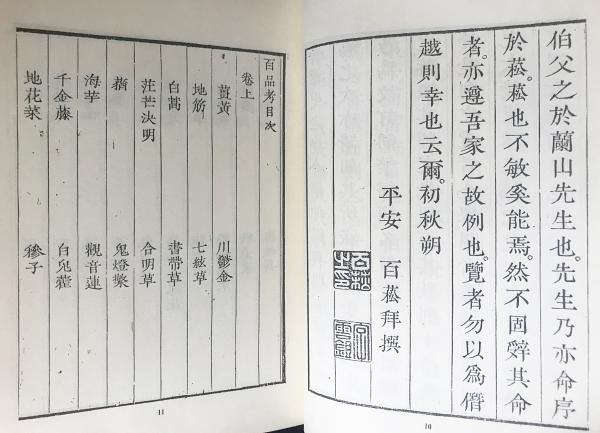 伯父之於蘭山先生也。先生乃亦命序
於菘。菘也不敏奚能焉。然不固辭其命
者。亦遵吾家之故例也。覽者勿以爲僭
越則幸也云爾。初秋朔
平安 百菘拜撰
10
百品考目次
卷上
薑黃 川鬱金
地筋 七絃草
白蒿 書帶草
茳芒决明 合明草
蕕 鬼燈檠
海芋 觀音蓮
千金藤 白兔藿
地花菜 穇子
11